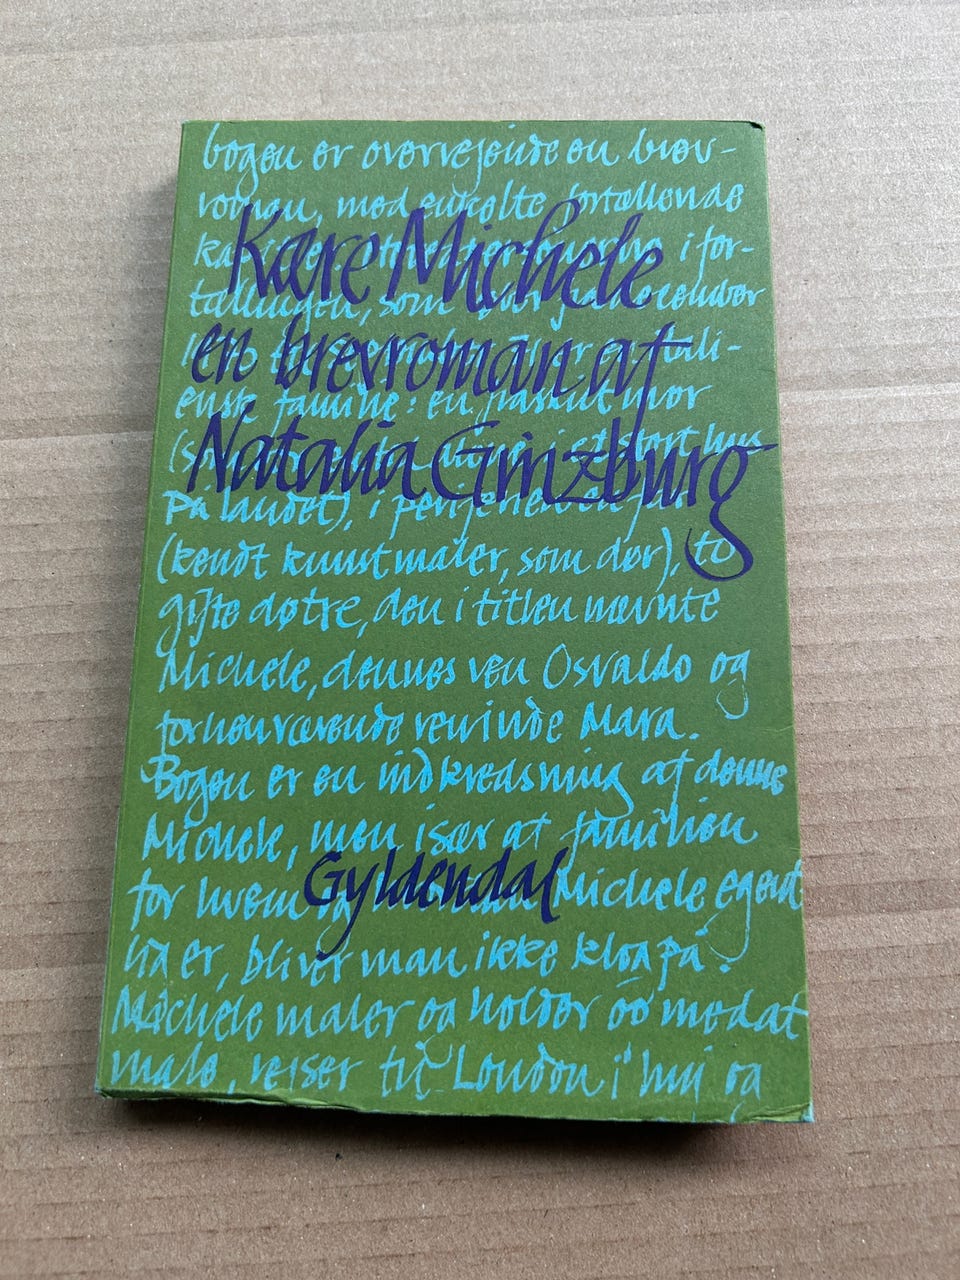 Kære Michele
en brevroman af
Natalia Ginzburg
Gyldendal
bogen er overvejende en brev-
roman, med enkelte fortællende
i for-
tællingen, som
itali-
ensk familie: en fraskilt mor
i et stort hus
på landet), i periferien
(kendt kunstmaler, som dør), to
gifte døtre, den i titlen nævnte
Michele, dennes ven Osvaldo og
forhenværende veninde Mara.
Bogen er en indkredsning af denne
Michele, men især af familien
for hvem og Michele egent
lig er, bliver man ikke klog på.
Michele maler og holder op med at
male, rejser til London i huj og